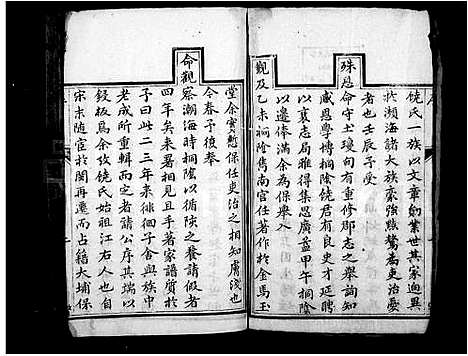 饶氏一族以文章創業世其家迥異
於瀕海諸大族豪強驁為吏治憂
者也壬辰子受
殊恩命守土瓊旬有重修郡志之舉詢知
咸恩學博桐陰饶君有良史才延聘
以襄志局雅得集廣益甲午桐陰
以邊俸滿余為保舉入
覲及乙未桐陰雋尚官任著作於金馬玉
堂余實慙保任吏治之相知膚淺也
今春予復奉
命觀察潮海時桐陰以徵之養請假者
四年矣來署相見且手著家譜質於
子曰此二三年來徘徊子舍與族中
老成所重輯而定者請公序其端以
鋟板焉余攷饶氏始祖江右人也自
宋末隨宦於閩再遷而占籍大埔保